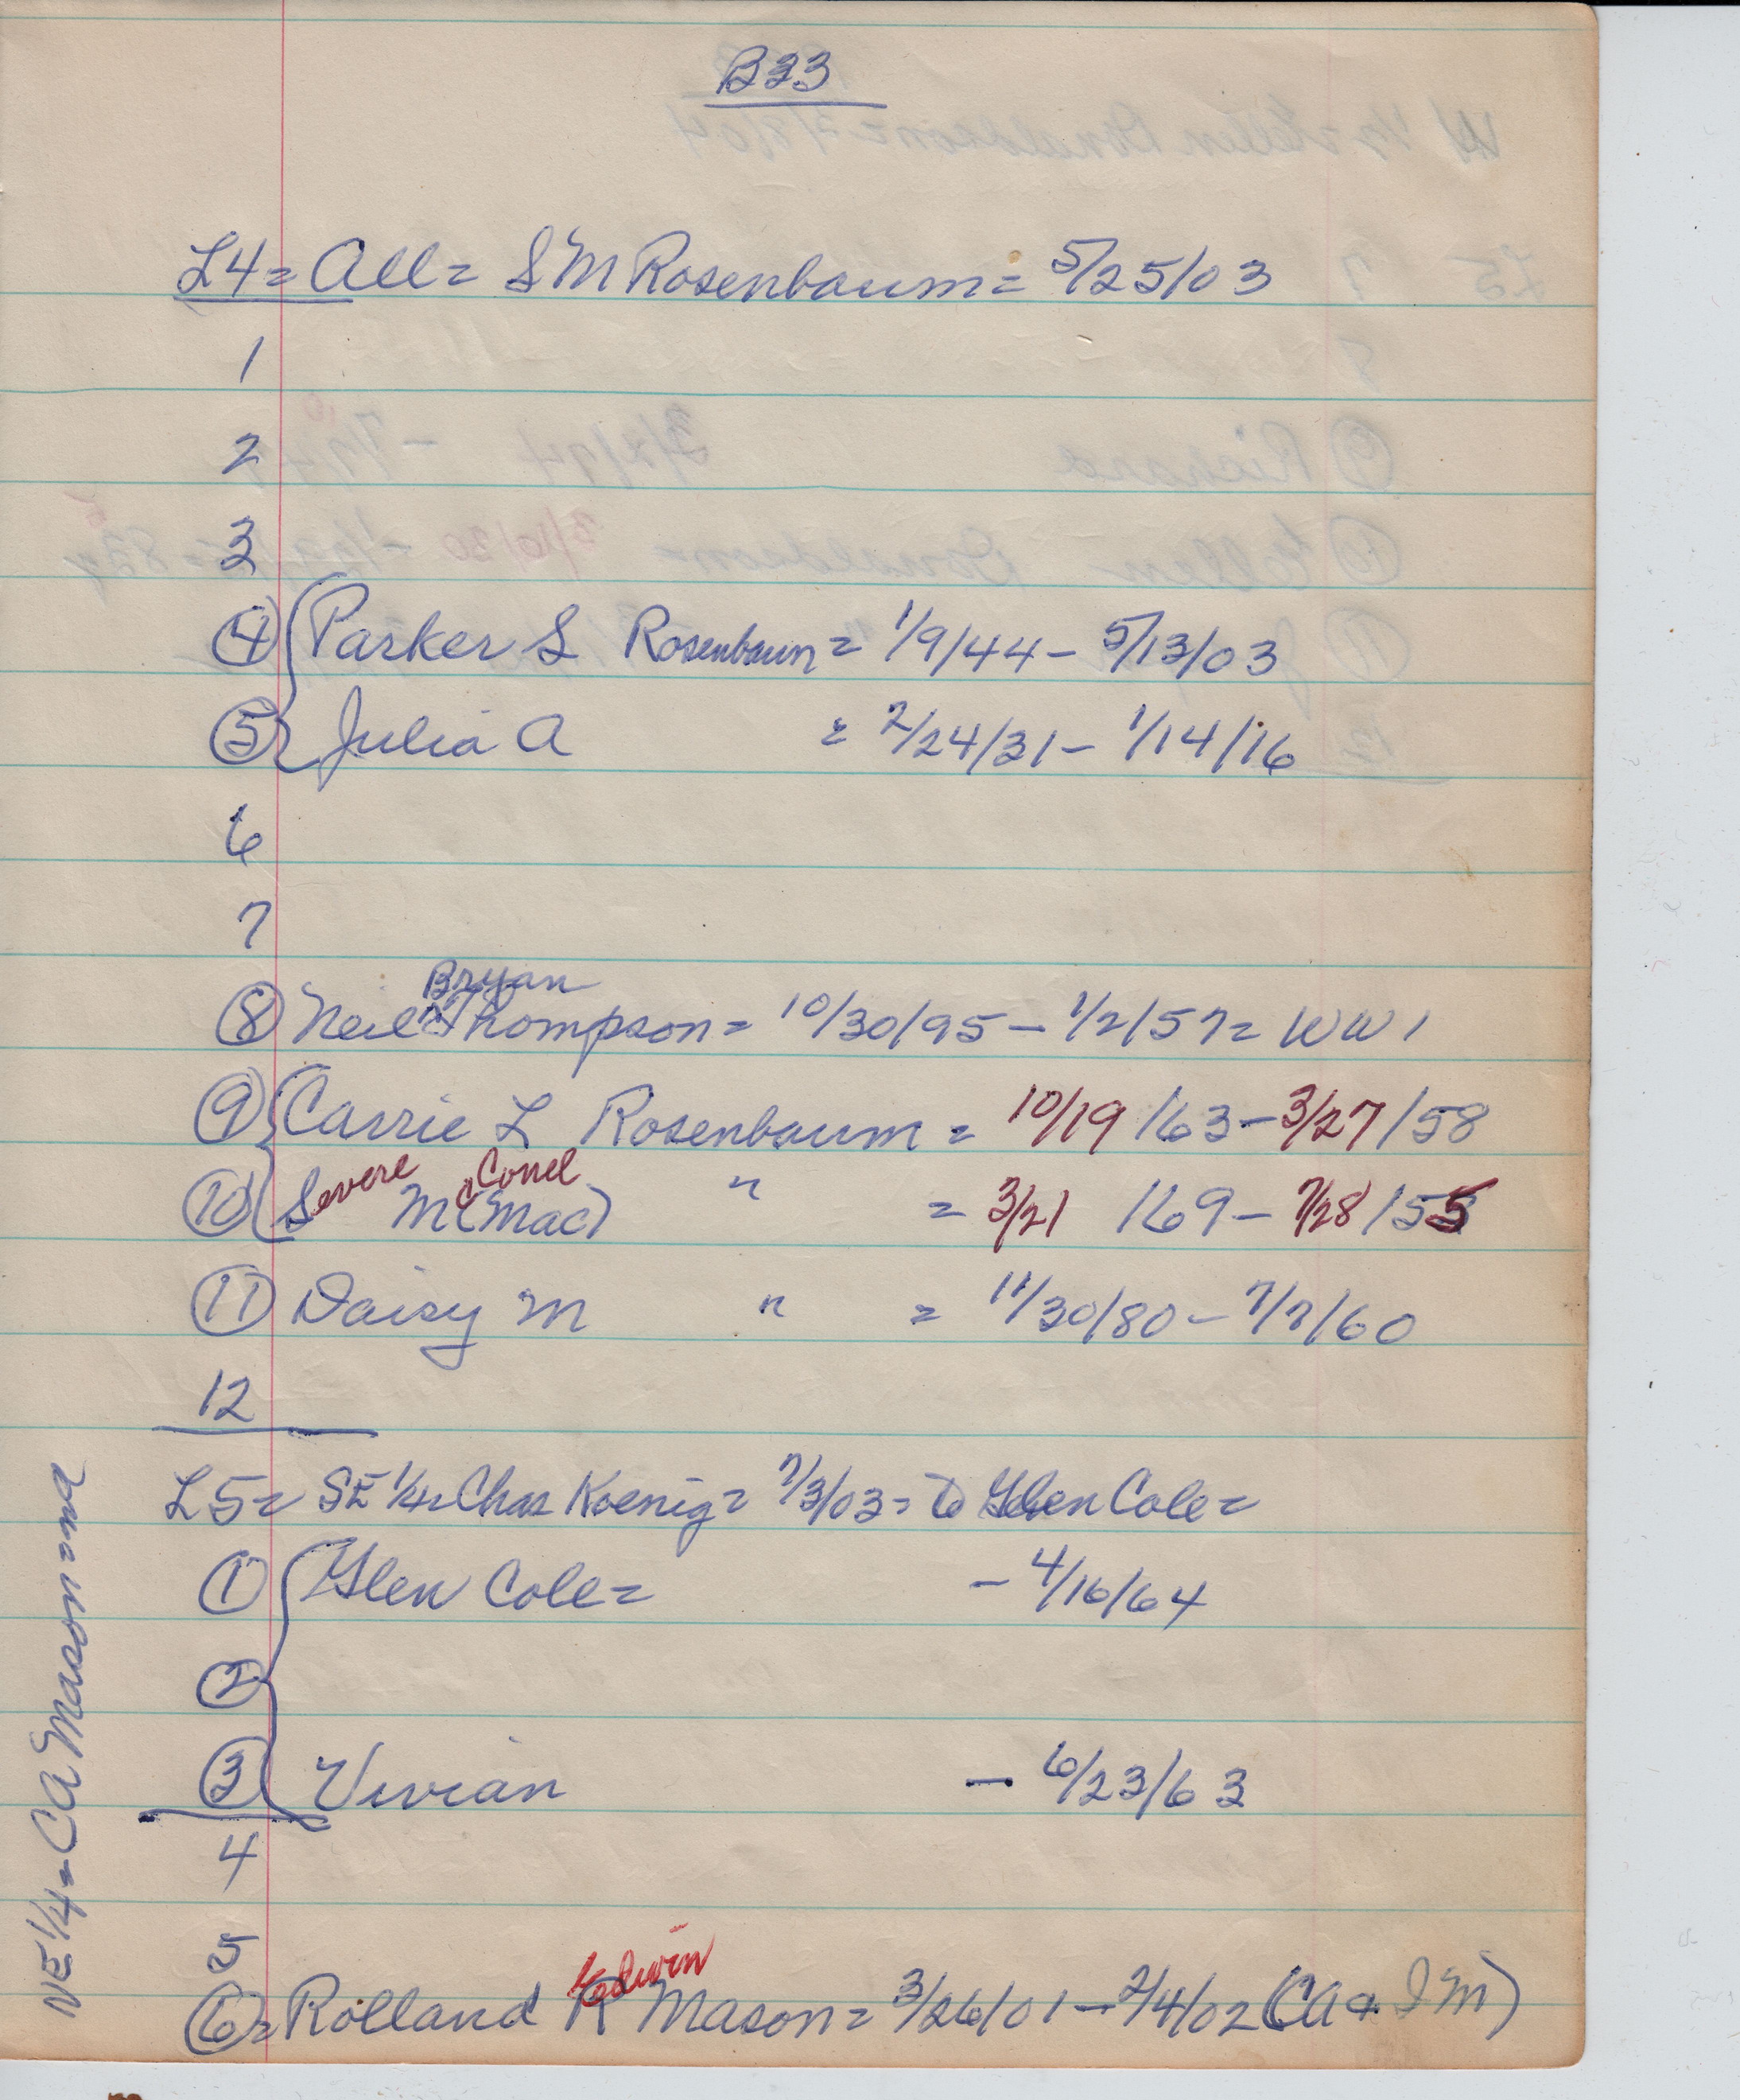 B33
L4 = All = S M Rosenbaum = 5/25/03
1
2
3
4 Parker S Rosenbaum = 1/9/44 - 5/13/03
5 Julia A = 2/24/31 - 1/14/16
6
7
Bryan
8 Neil ^ Thompson = 10/30/95 - 1/2/57 = WW 1
9 Carrie L Rosenbaum = 10/19/63 - 3/27/58
10 Severe McConel (Mac) " = 3/21/69 - 7/28/55
11 Daisy M " = 11/30/80 - 7/7/60
12
L5 = SE 1/4 = Chas Koenig = 7/3/03 = To Glen Cole =
1 Glen Cole = - 4/16/64
2
3 Vivian - 6/23/63
4
5
Edwin
6 = Rolland R Mason = 3/26/01 - 2/4/02 (CA + I M)
NE 1/4 = CA Mason = nd